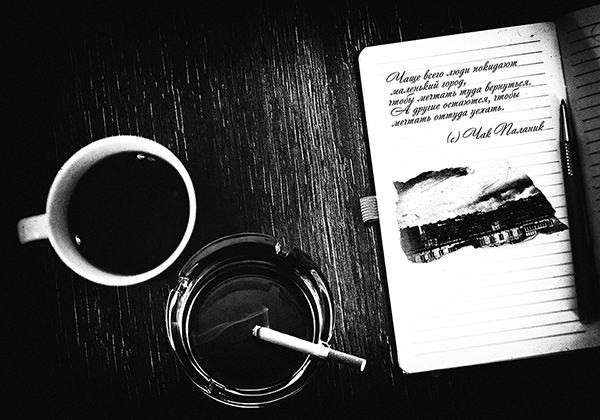 Чаще всего люди покидают
маленький город,
чтобы мечтать туда вернуться.
А другие остаются, чтобы
мечтать оттуда уехать.
(с) Чак Паланик